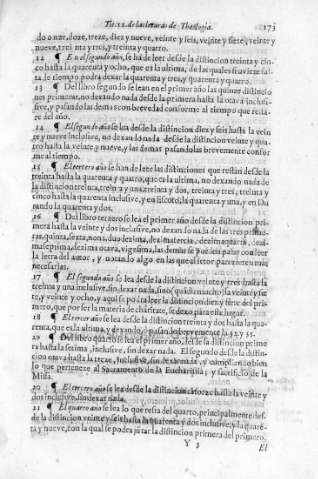 Tit. 12. de las leturas de Theologia. 173
do o naz, doze, treze, diez y nueve, veinte y seis, veinte y siete, veinte y
nueve, treinta y tres, y treinta y quatro.
12 ¶ En el segundo año, se ha de leer desde la distincion treinta y cin-
co hasta la quarenta y ocho, que es la ultima, de las quales si uviere fal-
ta de tiempo podra dexar la quarenta y quatro.
13 ¶ Del libro segundo se lean en el primer año las quinze distincio
nes primeras, no dexando nada desde la primera hasta la otava inclusi-
ve, y passando las demas con brevedad conforme al tiempo que resta-
re del año.
14 ¶ El segundo año se lea desde la distincion diez y seis hasta la vein
te y nueve inclusive, no dexando nada desde la distincion veinte y qua-
tro hasta la veinte y nueve, y las demas passandolas brevemente confor
me al tiempo.
15 ¶ El tercero año se han de leer las distinciones que restan desde la
treinta hasta la quarenta y quatro, que es la ultima, no dexando nada de
la distincion treinta, treinta y una, treinta y dos, treinta y tres, treinta y
cinco hasta la quarenta inclusive, y en Escoto, la quarenta y una, y en Du
rando la quarenta y dos.
16 ¶ Del libro tercero se lea el primer año desde la distincion pri-
mera hasta la veinte y dos inclusive, no dexando nada de las tres prime-
ras, quinta, sexta, nona, duodezima, dezimatercia, dezimaquarta, dezi-
maseptima, dezimaotava, vigesima, las demas se podran passar con leer
la letra del autor, y notando algo en las que al letor parecieren mas
necesarias.
17 ¶ El segundo año se lea desde la distincion veinte y tres hasta la
treinta y una inclusive, sin dexar nada, sino quiza mucho la veinte y sie
te, y veinte y ocho, y aqui se podra leer la distincion diez y siete del pri-
mero, que por ser la materia de charitate, se dexo para este lugar.
18 ¶ El tercer año se lea desde la distincion treinta y dos hasta la qua-
renta, que es la ultima, y dexando, o passando brevemente la 32. y 35.
19 ¶ Del libro quarto se lea el primer año, desde la distincion prime
ra hasta la setima, inclusive, sin dexar nada. El segundo desde la distin-
cion otava hasta la treze, inclusive, sin dexar nada, y tambien
lo que pertenece al Sacramento de la Eucharistia, y sacrificio de la
Missa.
20 ¶ El tercero año se lea desde la distincion catorze hasta la veinte y
dos inclusive, sin dexar nada.
21 ¶ El quarto año se lea lo que resta del quarto, principalmente des-
de la distincion veinte y seis hasta la quarenta y dos inclusive, y la quaren-
ta y nueve, con la qual se podra juntar la distincion primera del primero.
Y 3 El